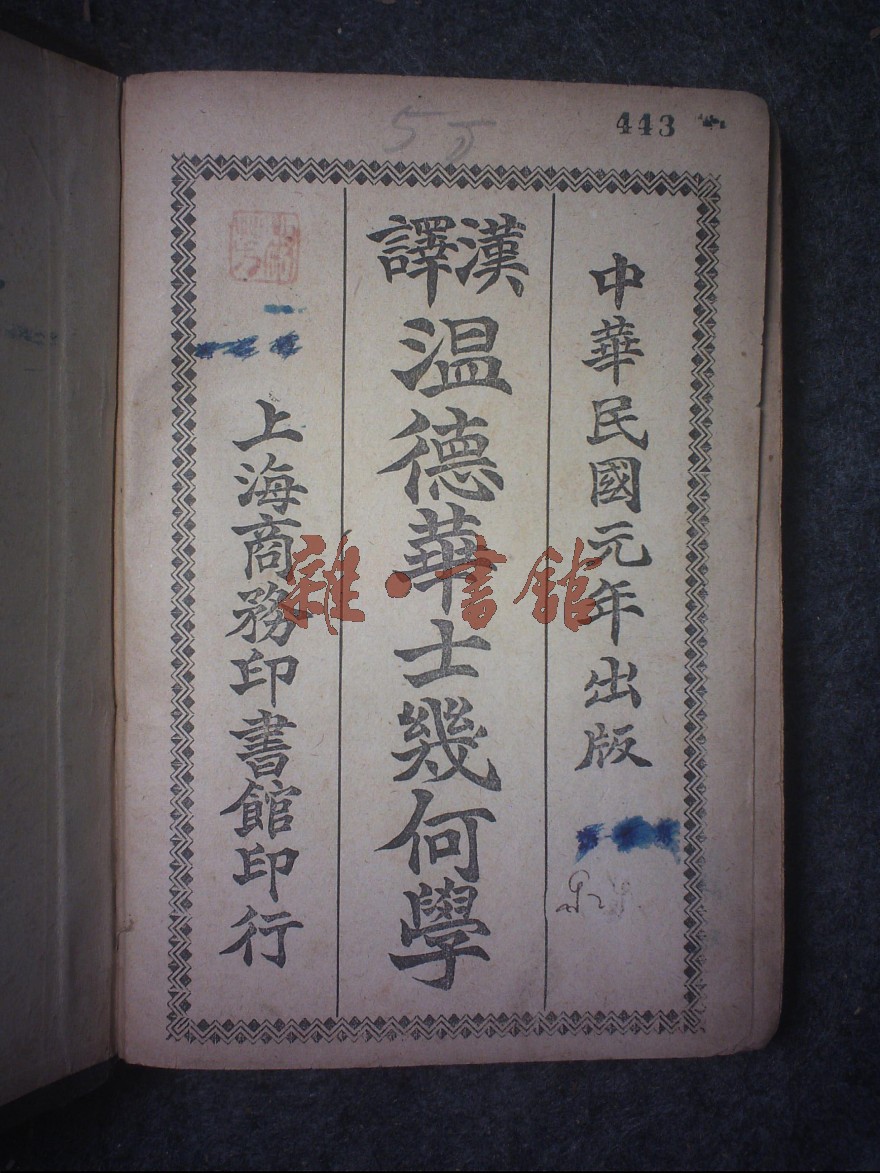 443
中華民國元年出版
漢譯
温德華士幾何學
上海商務印書館印行
雜·書館